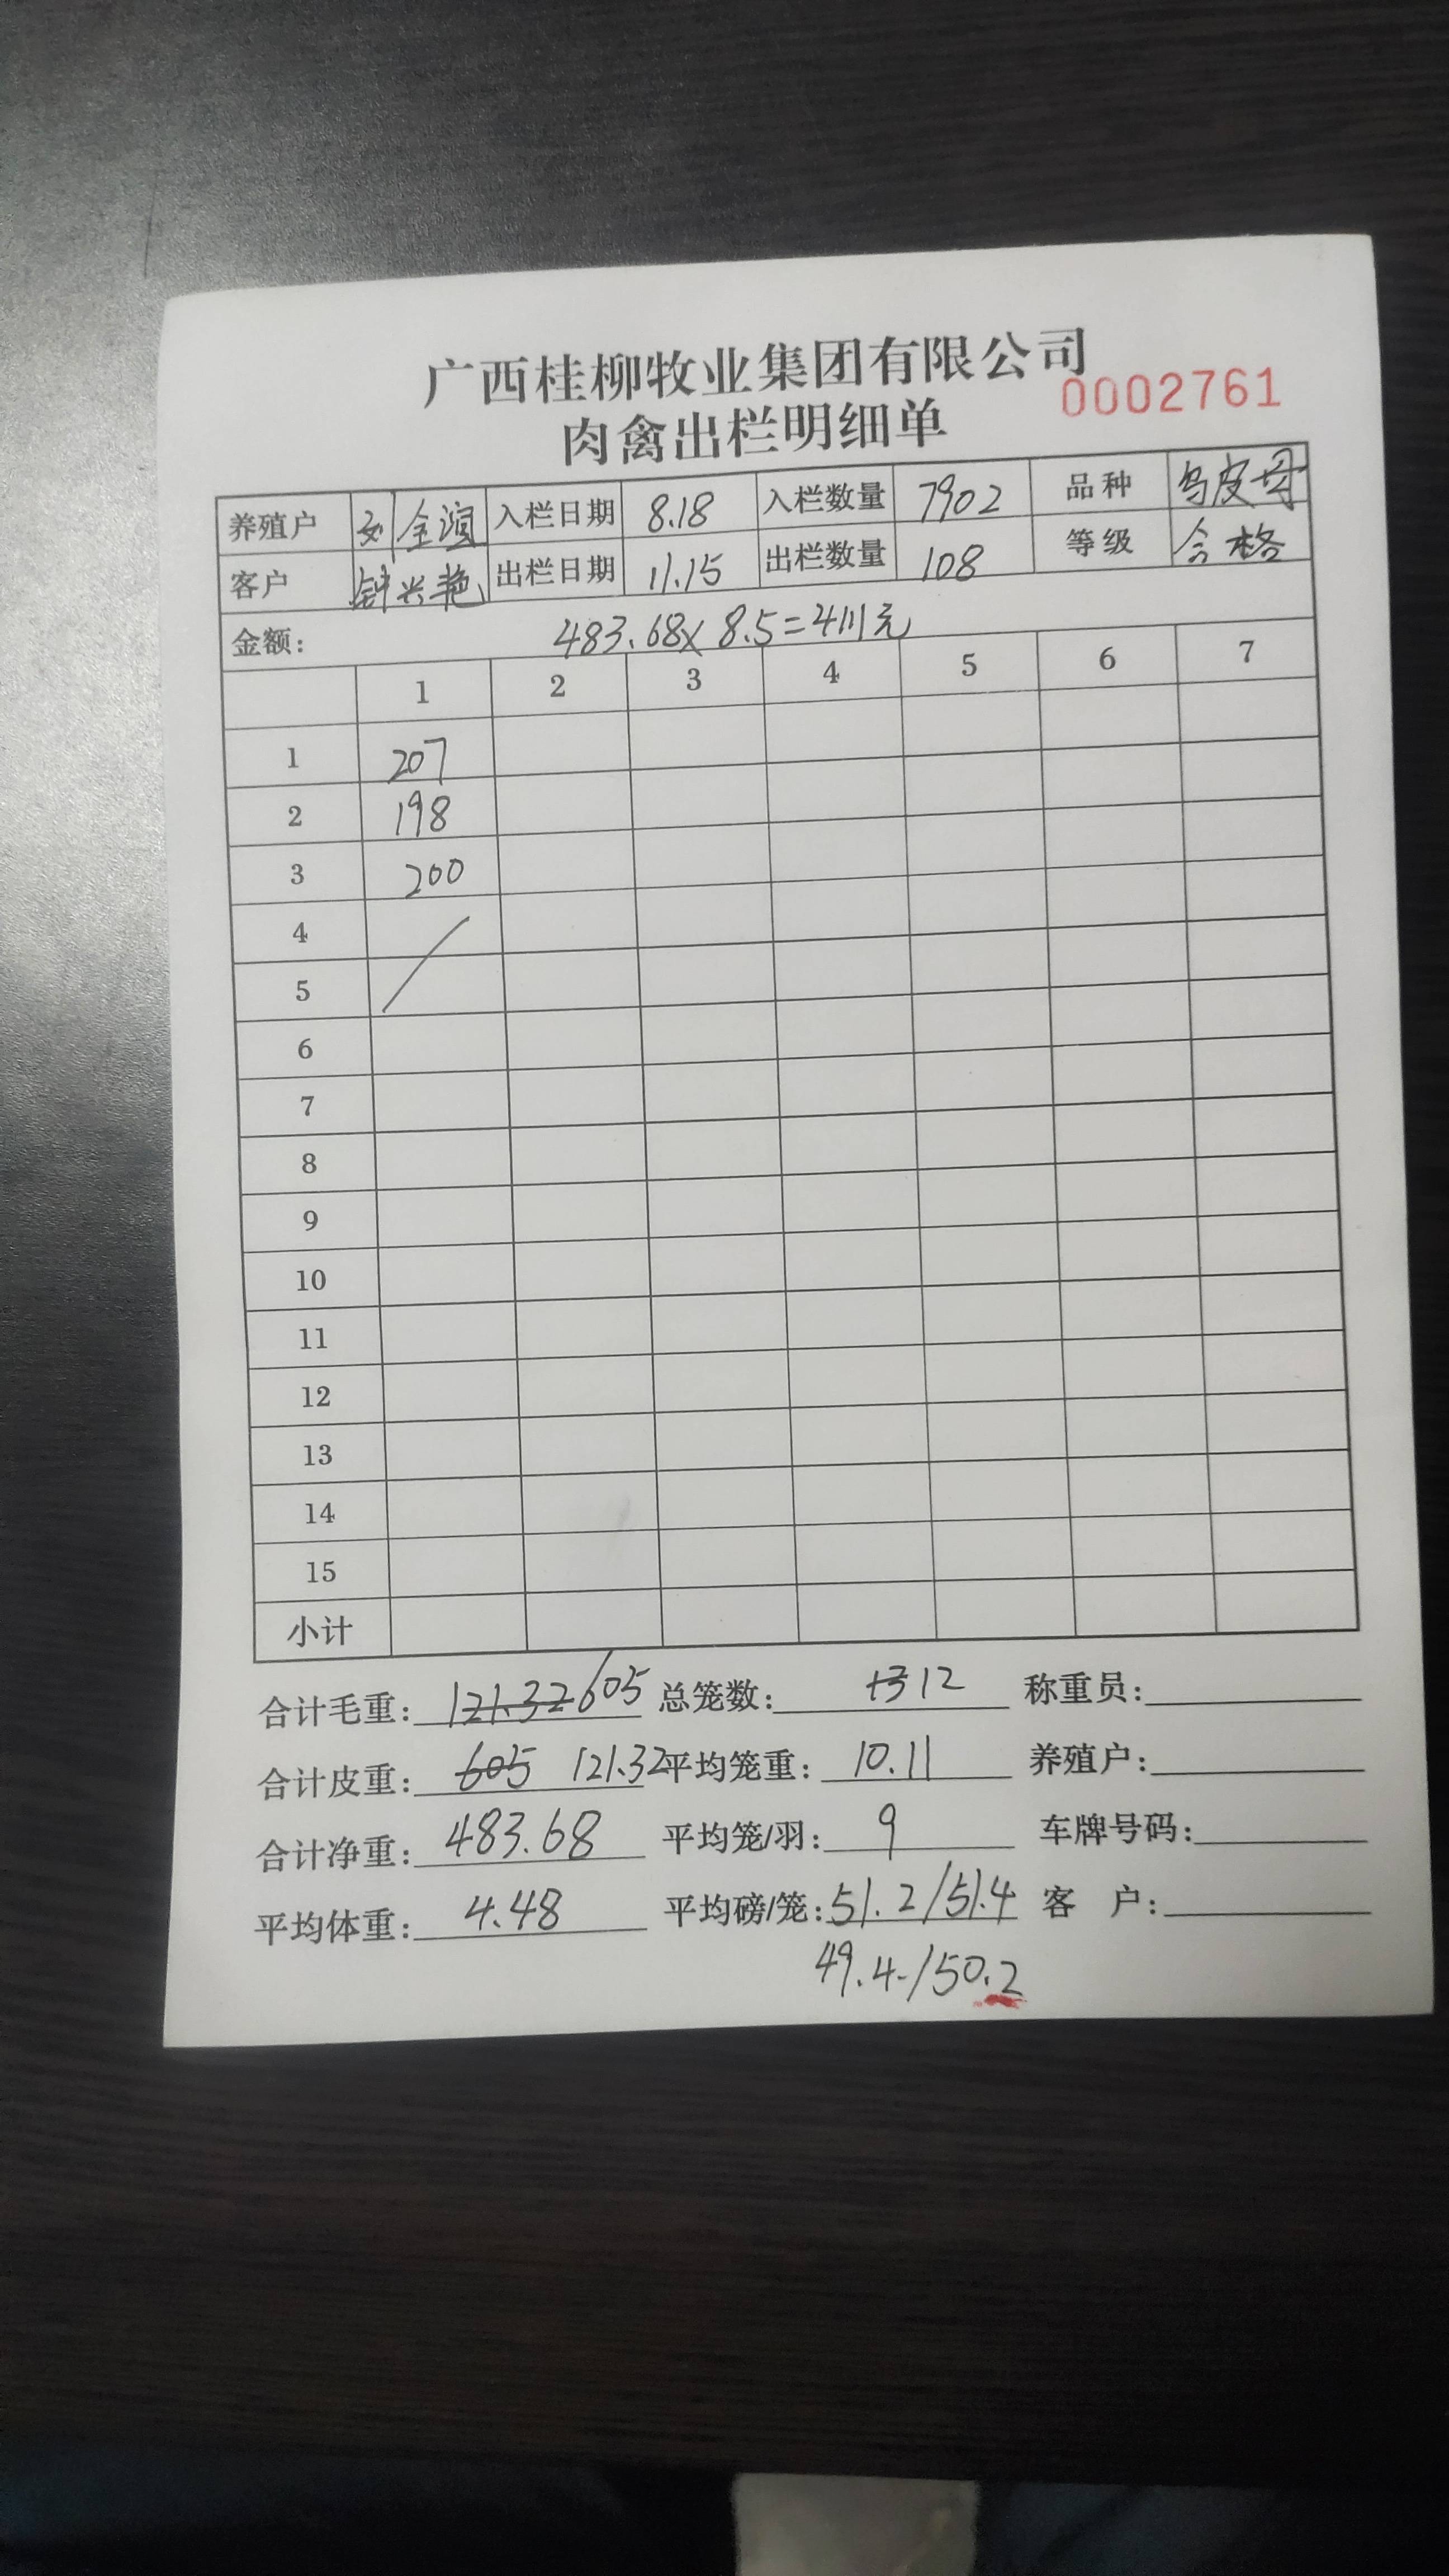 广西桂柳牧业集团有限公司
0002761
肉禽出栏明细单
养殖户 刘金谊 入栏日期 8.18 入栏数量 7902 品种 乌皮母
客户 钟兴艳 出栏日期 11.15 出栏数量 108 等级 合格
金额: 483.68×8.5=4111元
1 2 3 4 5 6 7
1 207
2 198
3 200
4
5
6
7
8
9
10
11
12
13
14
15
小计
合计毛重: 121.32 605 总笼数: 13 12 称重员:
合计皮重: 605 121.32 平均笼重: 10.11 养殖户:
合计净重: 483.68 平均笼/羽: 9 车牌号码:
平均体重: 4.48 平均磅/笼: 51.2/51.4 客 户:
49.4/50.2